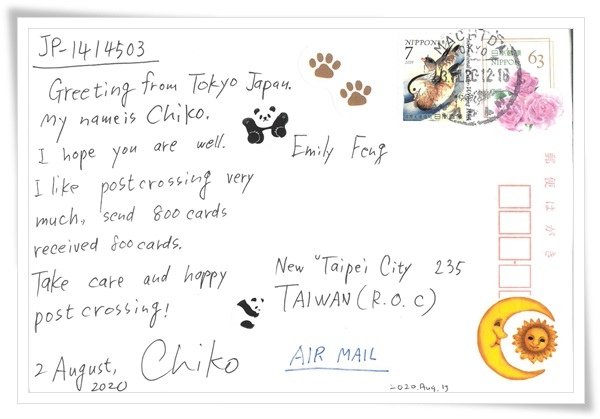 JP-1414503
Greeting from Tokyo Japan.
My name is Chiko.
I hope you are well.
I like postcrossing very
much, send 800 cards
received 800 cards.
Take care and happy
postcrossing!
2 August,
2020
Chiko
Emily Feng
New Taipei City 235
TAIWAN (R.O.C)
AIR MAIL
2020.Aug.19
7
NIPPON
MACHIDA
TOKYO
20-12-18
NIPPON
63
郵便はがき